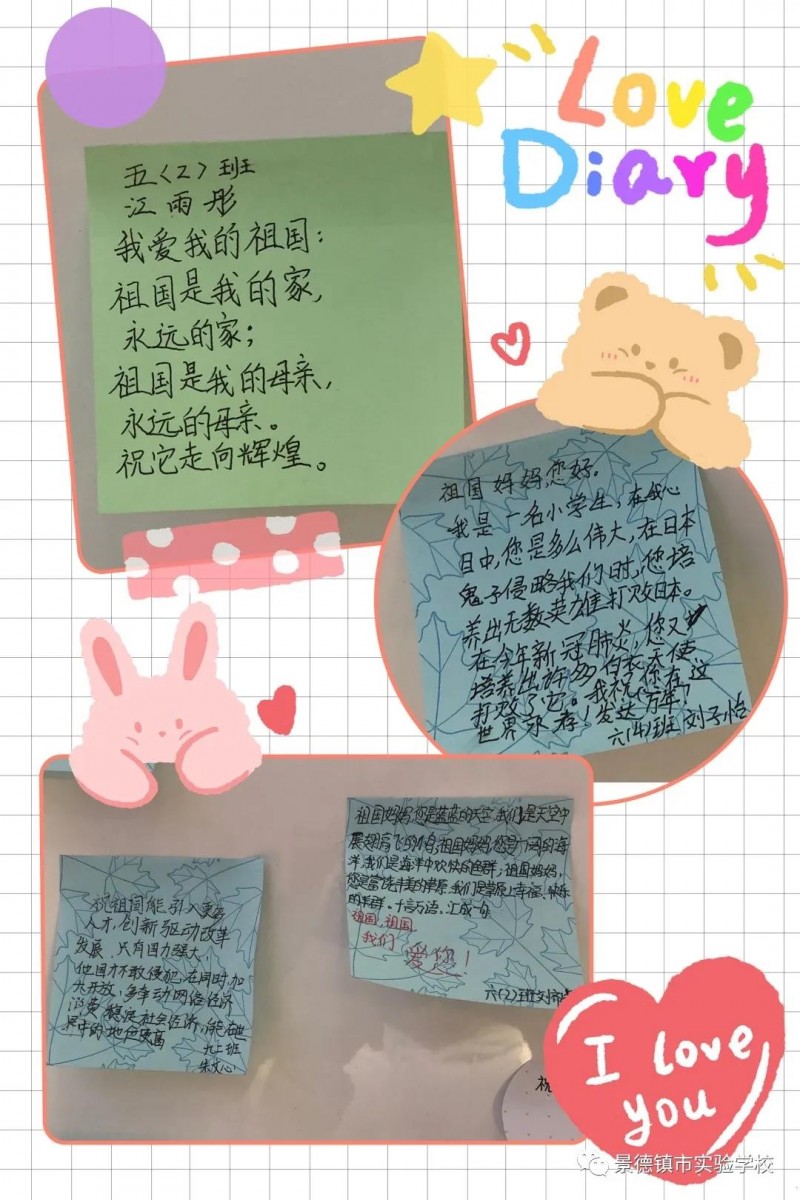 Love
Diary
五〈2〉班
江雨彤
我爱我的祖国：
祖国是我的家，
永远的家；
祖国是我的母亲，
永远的母亲。
祝它走向辉煌。
祖国妈妈，您好。
我是一名小学生，在我心
目中，您是多么伟大，在日本
鬼子侵略我们时，您培
养出无数英雄打败日本。
在今年新冠肺炎，您又
培养出许多白衣天使
打败了它。我祝你在这
世界永存！发达万年！
六（4）班 刘子怡
祖国妈妈，您是蓝蓝的天空，我们是天空中
展翅高飞的小鸟；祖国妈妈，您是广阔的海
洋，我们是海洋中欢快的鱼群；祖国妈妈，
您是富饶丰美的草原，我们是草原上幸福、快乐
的羊群。千言万语，汇成一句
祖国，祖国
我们
爱您！
六（2）班刘
祝祖国能引入更多
人才，创新驱动改革
发展，只有国力强大，
他国才不敢侵犯，在同时，加
大开放，多带动网络经济
消费，稳促社会经济，能在世
界中的地位更高
九
班
朱文心
祝
I love
you
景德镇市实验学校